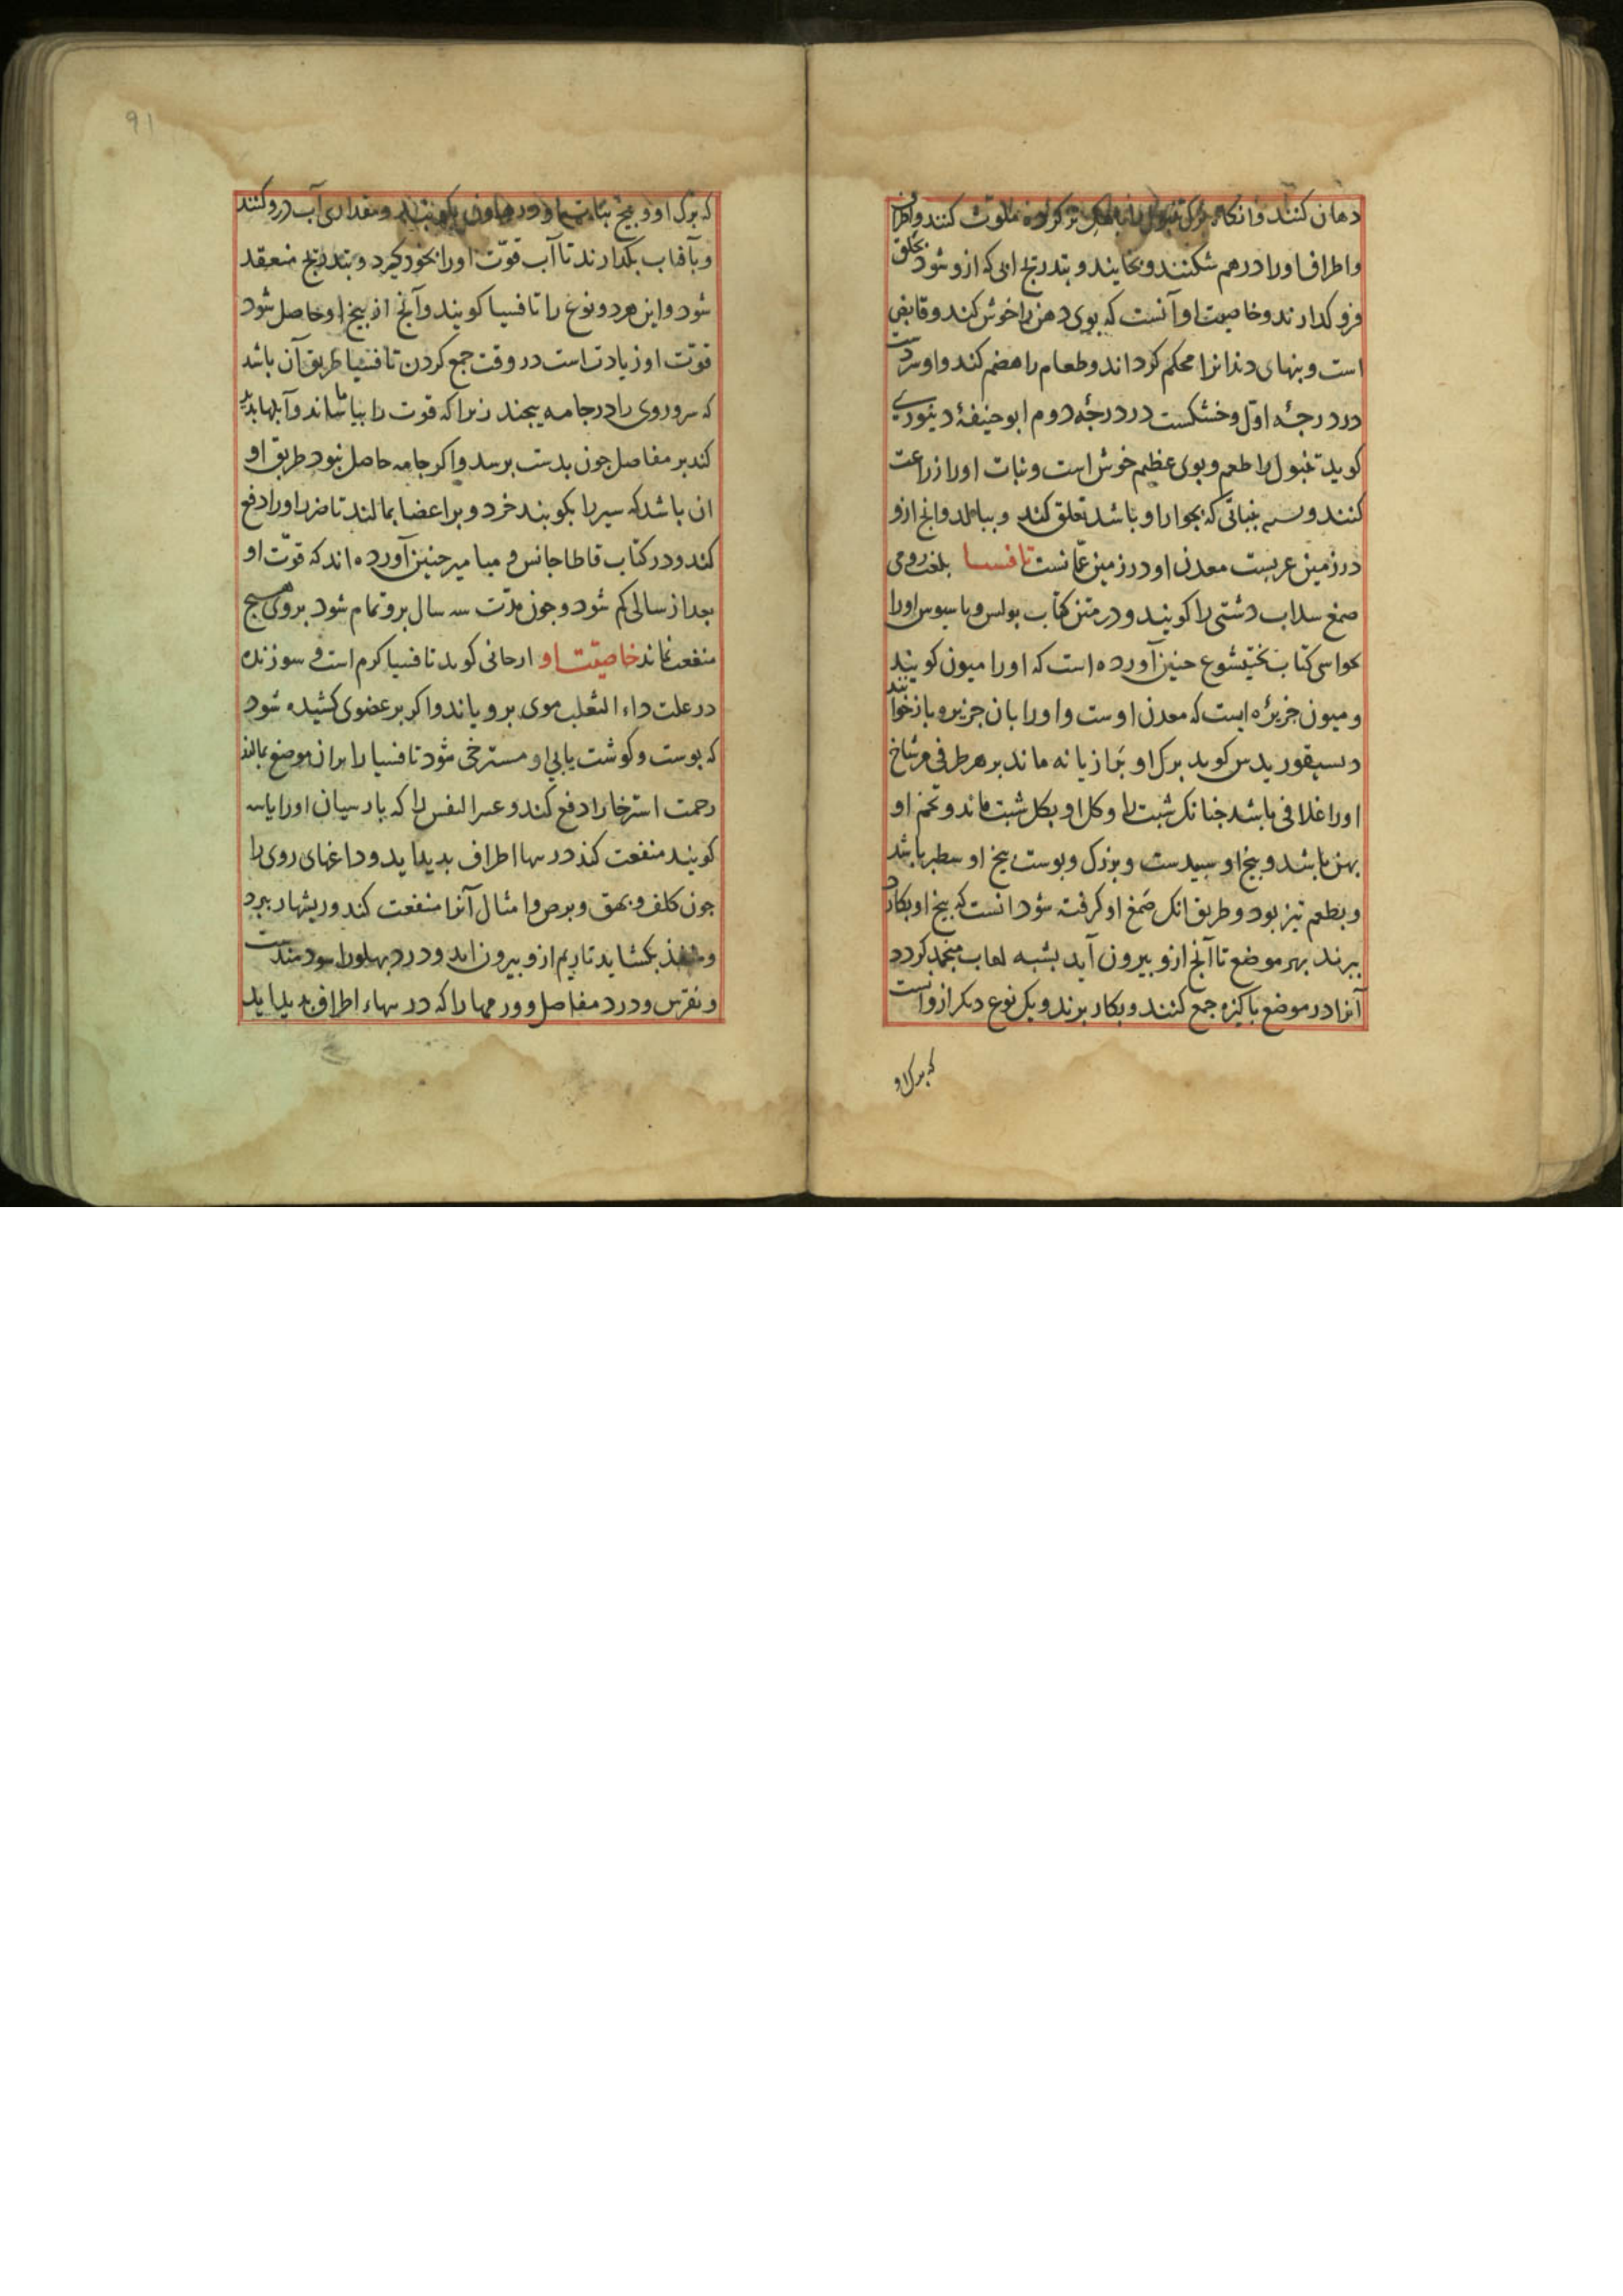 دهان کنند وانکاه برک تنبول را بآهک تر کرده ملوث کنند واطراف
واطراف اورا درهم شکنند و بخایند و بتدریج ابی که ازو شود بحلق
فرو کدارند و خاصیت او آنست که بوی دهن را خوش کند و قابض
است و بنهای دندانرا محکم کرداند و طعام را هضم کند و او سردست
در درجهٔ اوّل و خشکست در درجهٔ دوم ابو حنیفهٔ دینوری
کوید تنبول را طعم و بوی عظیم خوش است و نبات اورا زراعت
کنند و بنباتی که بجوار او باشد تعلق کند و ببالد وانج ازو
در زمین عربست معدن او در زمین عمّانست تافسیا بلغت رومی
صمغ سداب دشتی را کویند و در متن کتاب بولس و اورا
بحواسی کتاب بختیشوع حنین آورده است که اورا میون کویند
و میون جزیرهٔ ایست که معدن اوست و اورا بان جزیره بازخوانند
دیسقوریدس کوید برک او برازیانه ماند بر هر طرفی هر شاخ
اورا غلافی باشد جنانک شبت را و کل او بکل شبت ماند و تخم او
بهن باشد و بیخ او سبیدست و بزرک و بوست بیخ او سطبر باشد
و بطعم تیز بود و طریق انک صَمغ او کرفته شود انست که بیخ او بکارد
ببرند بهر موضع تا آنج ازو بیرون آید بشبه لعاب منجمد کردد
آنرا در موضع باکیزه جمع کنند و بکار برند و یک نوع دیکر ازو آنست
که برک او
91
که برک او و بیخ بتابستان در هاون بکوبند و مقداری آب درو کنند
و بآفتاب بکدارند تا آب قوّت اورا بخود کیرد و بتدریج منعقد
شود و این هر دو نوع را تافسیا کویند و آنج از بیخ او حاصل شود
قوّت او زیادت است در وقت جمع کردن تافسیا طریق آن باشد
که سر و روی را در جامه بیجند زیرا که قوت را بیاماساند و آبلها بدید
کند بر مفاصل جون بدست برسد و اکر جامه حاصل نبود طریق او
ان باشد که سیر را بکوبند خرد و بر اعضا بمالند تا ضرر اورا دفع
کند و در کتاب قاطاجانس و میامیر حنین آورده اند که قوّت او
بعد از سالی کم شود و جون مدّت سه سال برو تمام شود بروی هیج
منفعت نماند خاصیّت او ارحانی کوید تافسیا کرم است و سوزنده
در علت داء الثعلب موی برویاند و اکر بر عضوی کشیده شود
که بوست و کوشت یابی او مسترخی شود تافسیا را بران موضع بمالند
زحمت استرخا را دفع کند و عسر النفس را که بارسیان اورا یاسه
کویند منفعت کند در سها اطراف بدید اید و داغهای روی را
جون کلف و بهق و برص و امثال آنرا منفعت کند و ریشها ببرد
و منفذ بکشاید تا ریم ازو بیرون اید و درد بهلورا سودمندست
و نقرس و درد مفاصل و ورمها را که در سهاء اطراف بدید اید